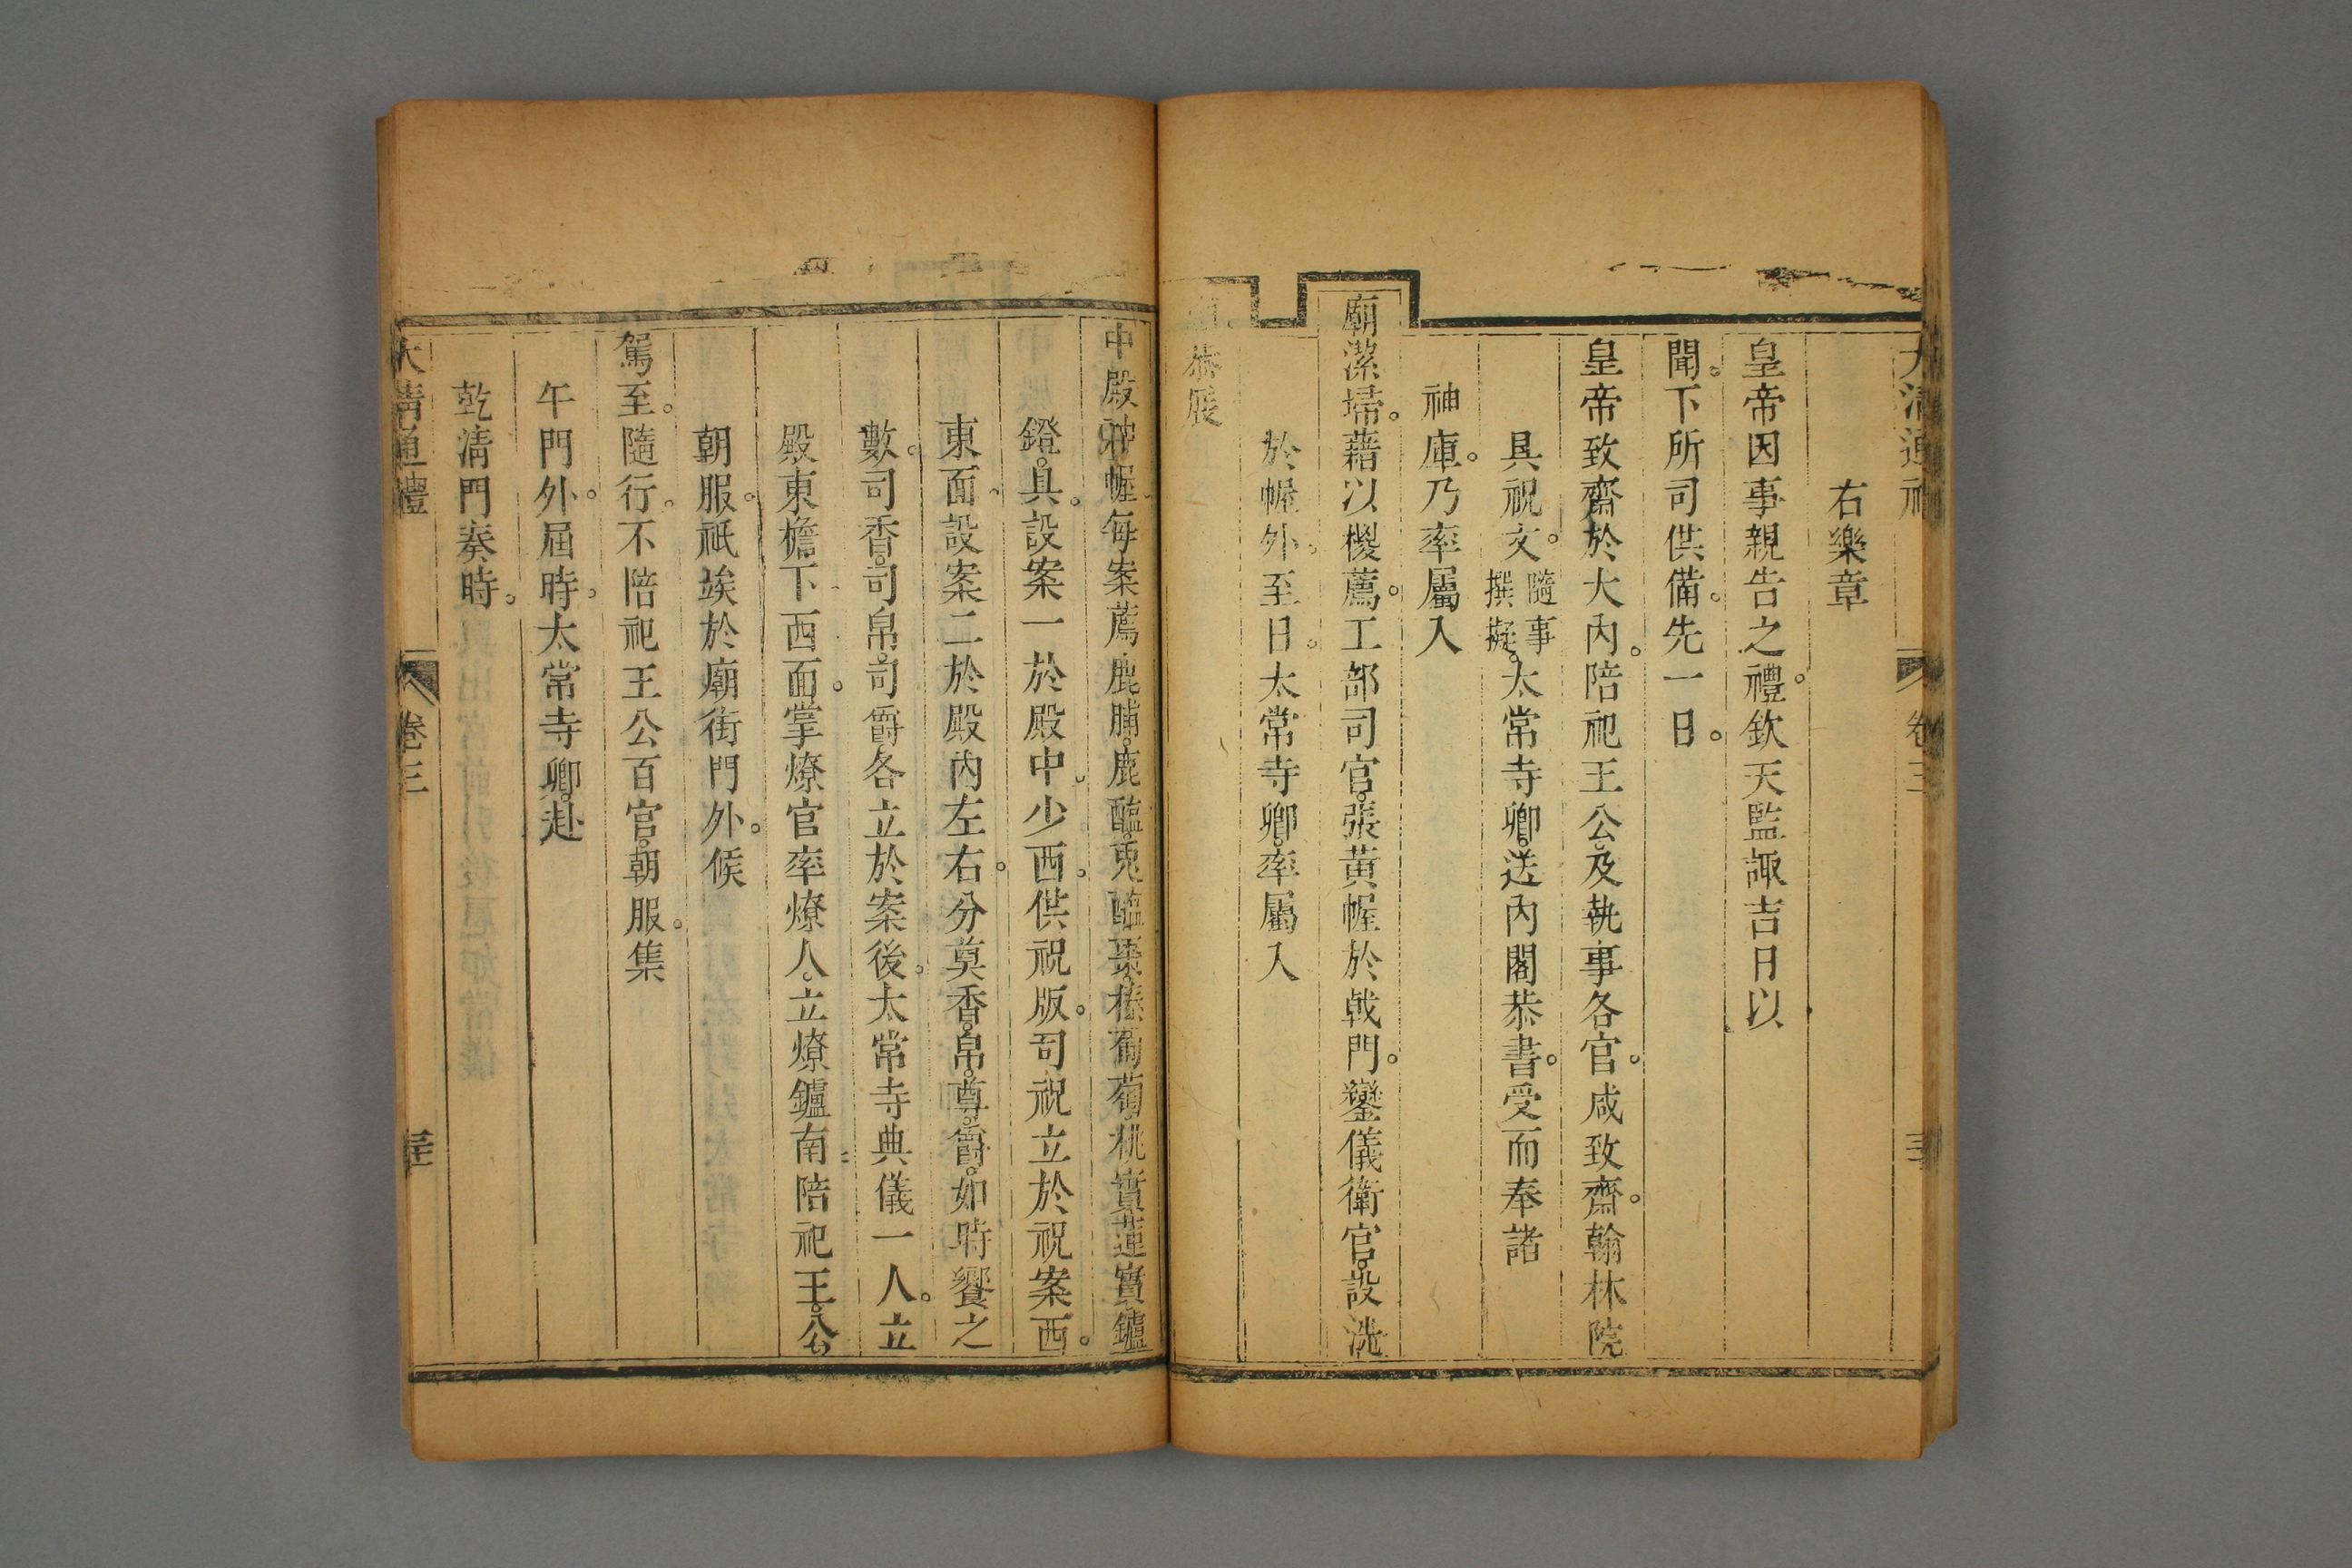 右樂章
皇帝因事親告之禮。欽天監諏吉日以
聞。下所司供備。先一日。
皇帝致齋於大內。陪祀王公。及執事各官。咸致齋。翰林院
具祝文。隨事撰擬。太常寺卿。送內閣恭書。受而奉諸
神庫。乃率屬入
廟潔埽。藉以椶薦。工部司官。張黃幄於戟門。鑾儀衛官。設洗
於幄外。至日。太常寺卿。率屬入
廟。恭展
中殿神幄。每案薦鹿脯。鹿醢。兎醢。棗。榛。葡萄。桃實。蓮實。鑪
鐙。具。設案一於殿中。少西。供祝版。司祝立於祝案西。
東面。設案二於殿內左右。分奠香。帛。尊。爵。如時饗之
數。司香。司帛。司爵各立於案後。太常寺典儀一人。立
殿東檐下西面。掌燎官率燎人。立燎鑪南。陪祀王。公
朝服。祇竢於廟街門外。候
駕至。隨行。不陪祀王公百官。朝服。集
午門外。屆時。太常寺卿。赴
乾清門奏時。
大清通禮
卷三